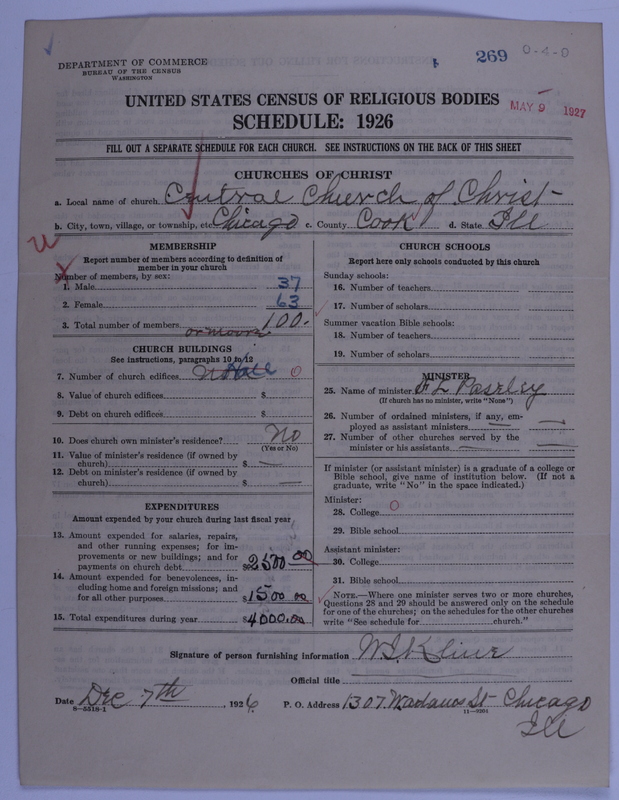 269 0-4-0
DEPARTMENT OF COMMERCE
BUREAU OF THE CENSUS
WASHINGTON
UNITED STATES CENSUS OF RELIGIOUS BODIES
MAY 9 1927
SCHEDULE: 1926
FILL OUT A SEPARATE SCHEDULE FOR EACH CHURCH. SEE INSTRUCTIONS ON THE BACK OF THIS SHEET
CHURCHES OF CHRIST
a. Local name of church Central Church of Christ
b. City, town, village, or township, etc. Chicago c. County Cook d. State Ill
MEMBERSHIP
Report number of members according to definition of
member in your church
Number of members, by sex:
1. Male 37
2. Female 63
3. Total number of members 100.
or more
CHURCH BUILDINGS
See instructions, paragraphs 10 to 12
7. Number of church edifices Hall 0
8. Value of church edifices $
9. Debt on church edifices $
10. Does church own minister's residence? No
(Yes or No)
11. Value of minister's residence (if owned by
church) $ —
12. Debt on minister's residence (if owned by
church) $ —
EXPENDITURES
Amount expended by your church during last fiscal year
13. Amount expended for salaries, repairs,
and other running expenses; for im-
provements or new buildings; and for
payments on church debt $2500 00
14. Amount expended for benevolences, in-
cluding home and foreign missions; and
for all other purposes $1500 00
15. Total expenditures during year $4000.00
CHURCH SCHOOLS
Report here only schools conducted by this church
Sunday schools:
16. Number of teachers
17. Number of scholars
Summer vacation Bible schools:
18. Number of teachers
19. Number of scholars
MINISTER
25. Name of minister F L Paseley
(If church has no minister, write "None")
26. Number of ordained ministers, if any, em-
ployed as assistant ministers —
27. Number of other churches served by the
minister or his assistants —
If minister (or assistant minister) is a graduate of a college or
Bible school, give name of institution below. (If not a
graduate, write "No" in the space indicated.)
Minister:
28. College 0
29. Bible school
Assistant minister:
30. College
31. Bible school
NOTE.—Where one minister serves two or more churches,
Questions 28 and 29 should be answered only on the schedule
for one of the churches; on the schedules for the other churches
write "See schedule for church."
Signature of person furnishing information W. S. Kline
Official title
Date Dec 7th, 1926. P. O. Address 1307 St- Chicago
8-5518-1 11-9264
Ill